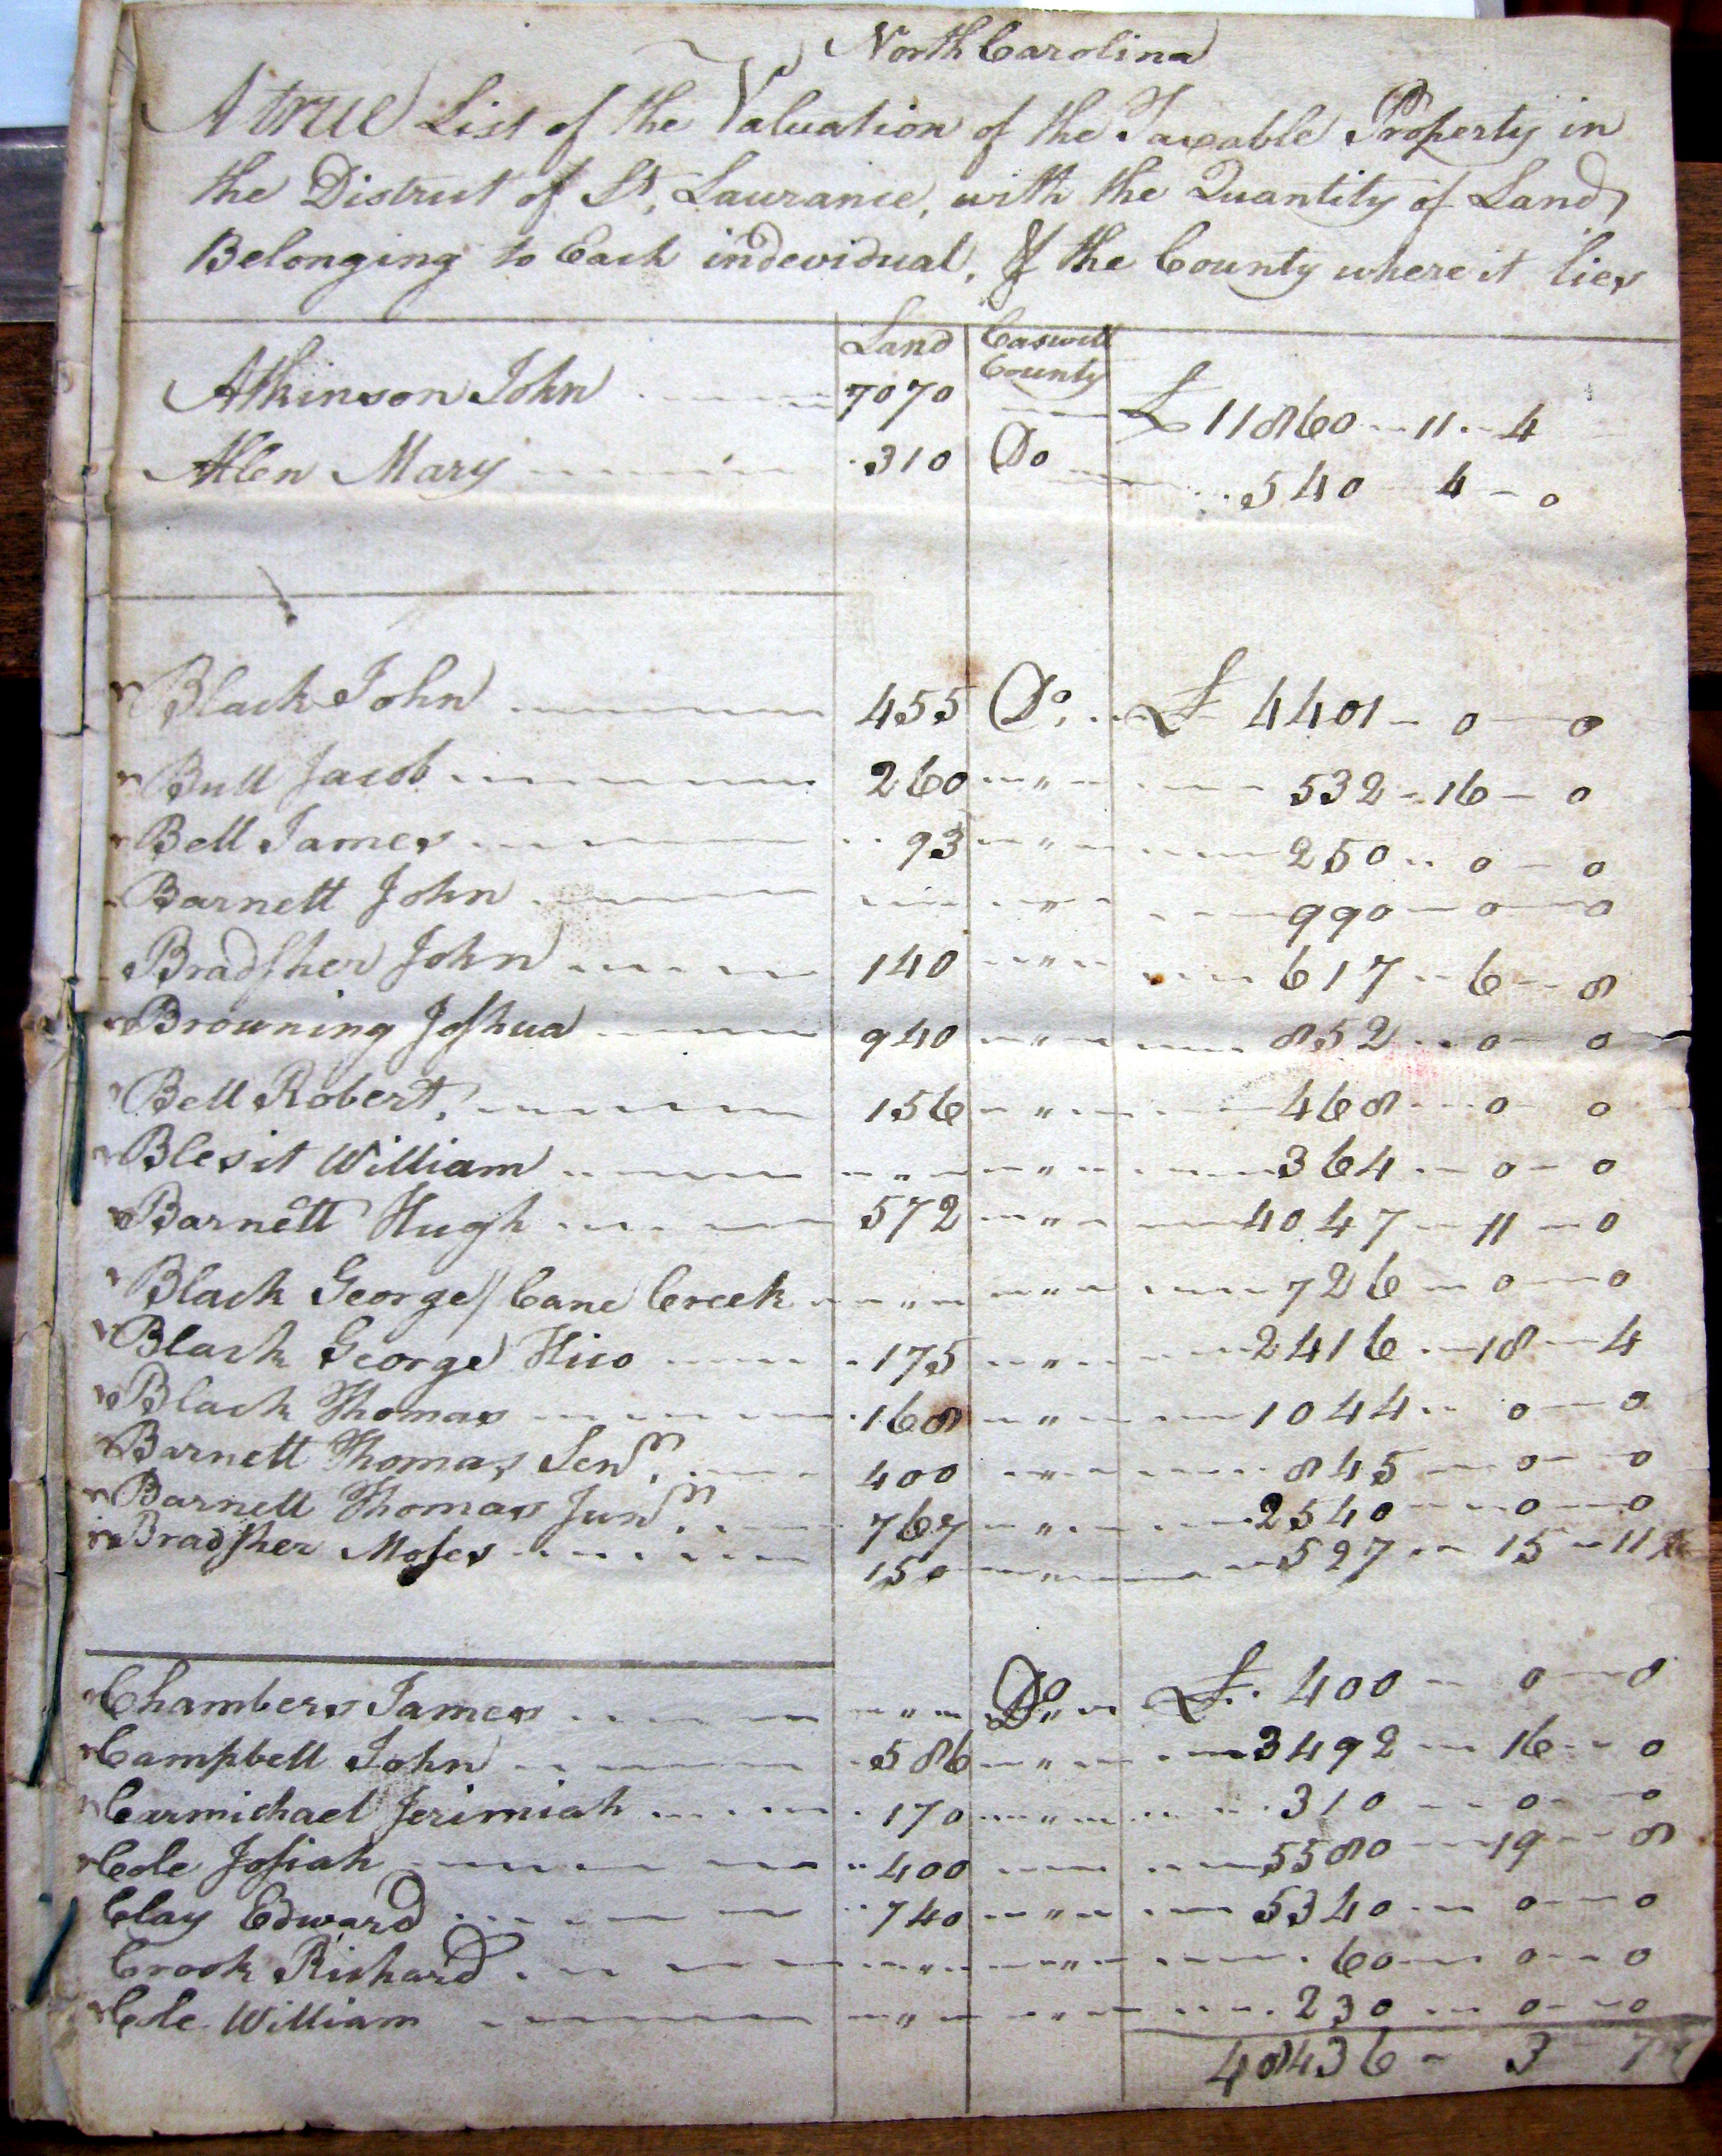 North Carolina
A true List of the Valuation of the Taxable Property in
the District of St. Laurance, with the Quantity of Land
Belonging to Each indevidual, & the County where it lies
Land Caswell County
Atkinson John 7070 £ 11860 - 11 - 4
Allen Mary 310 Do 540 4 - 0
Black John 455 Do. £ 4401 - 0 - 0
Bull Jacob 260 " 532 - 16 - 0
Bell James 93 " 250 - 0 - 0
Barnett John " 990 - 0 - 0
Bradsher John 140 " 617 - 6 - 8
Browning Joshua 940 " 852 - 0 - 0
Bell Robert. 156 " 468 - 0 - 0
Blesit William " " 364 - 0 - 0
Barnett Hugh 572 " 4047 - 11 - 0
Black George // Cane Creek " " 726 - 0 - 0
Black George Hico 175 " 2416 - 18 - 4
Black Thomas 168 " 1044 - 0 - 0
Barnett Thomas Senr. 400 " 845 - 0 - 0
Barnett Thomas Junr. 767 " 2540 - 0 - 0
Bradsher Moses 150 " 527 - 15 - 11
Chambers James " Do " £ 400 - 0 - 0
Campbell John 586 " 3492 - 16 - 0
Carmichael Jerimiah 170 " 310 - 0 - 0
Cole Josiah 400 5580 - 19 - 8
Clay Edward 740 " 5340 - 0 - 0
Crook Richard " " 60 - 0 - 0
Cole William " " 230 - 0 - 0
48436 - 3 7